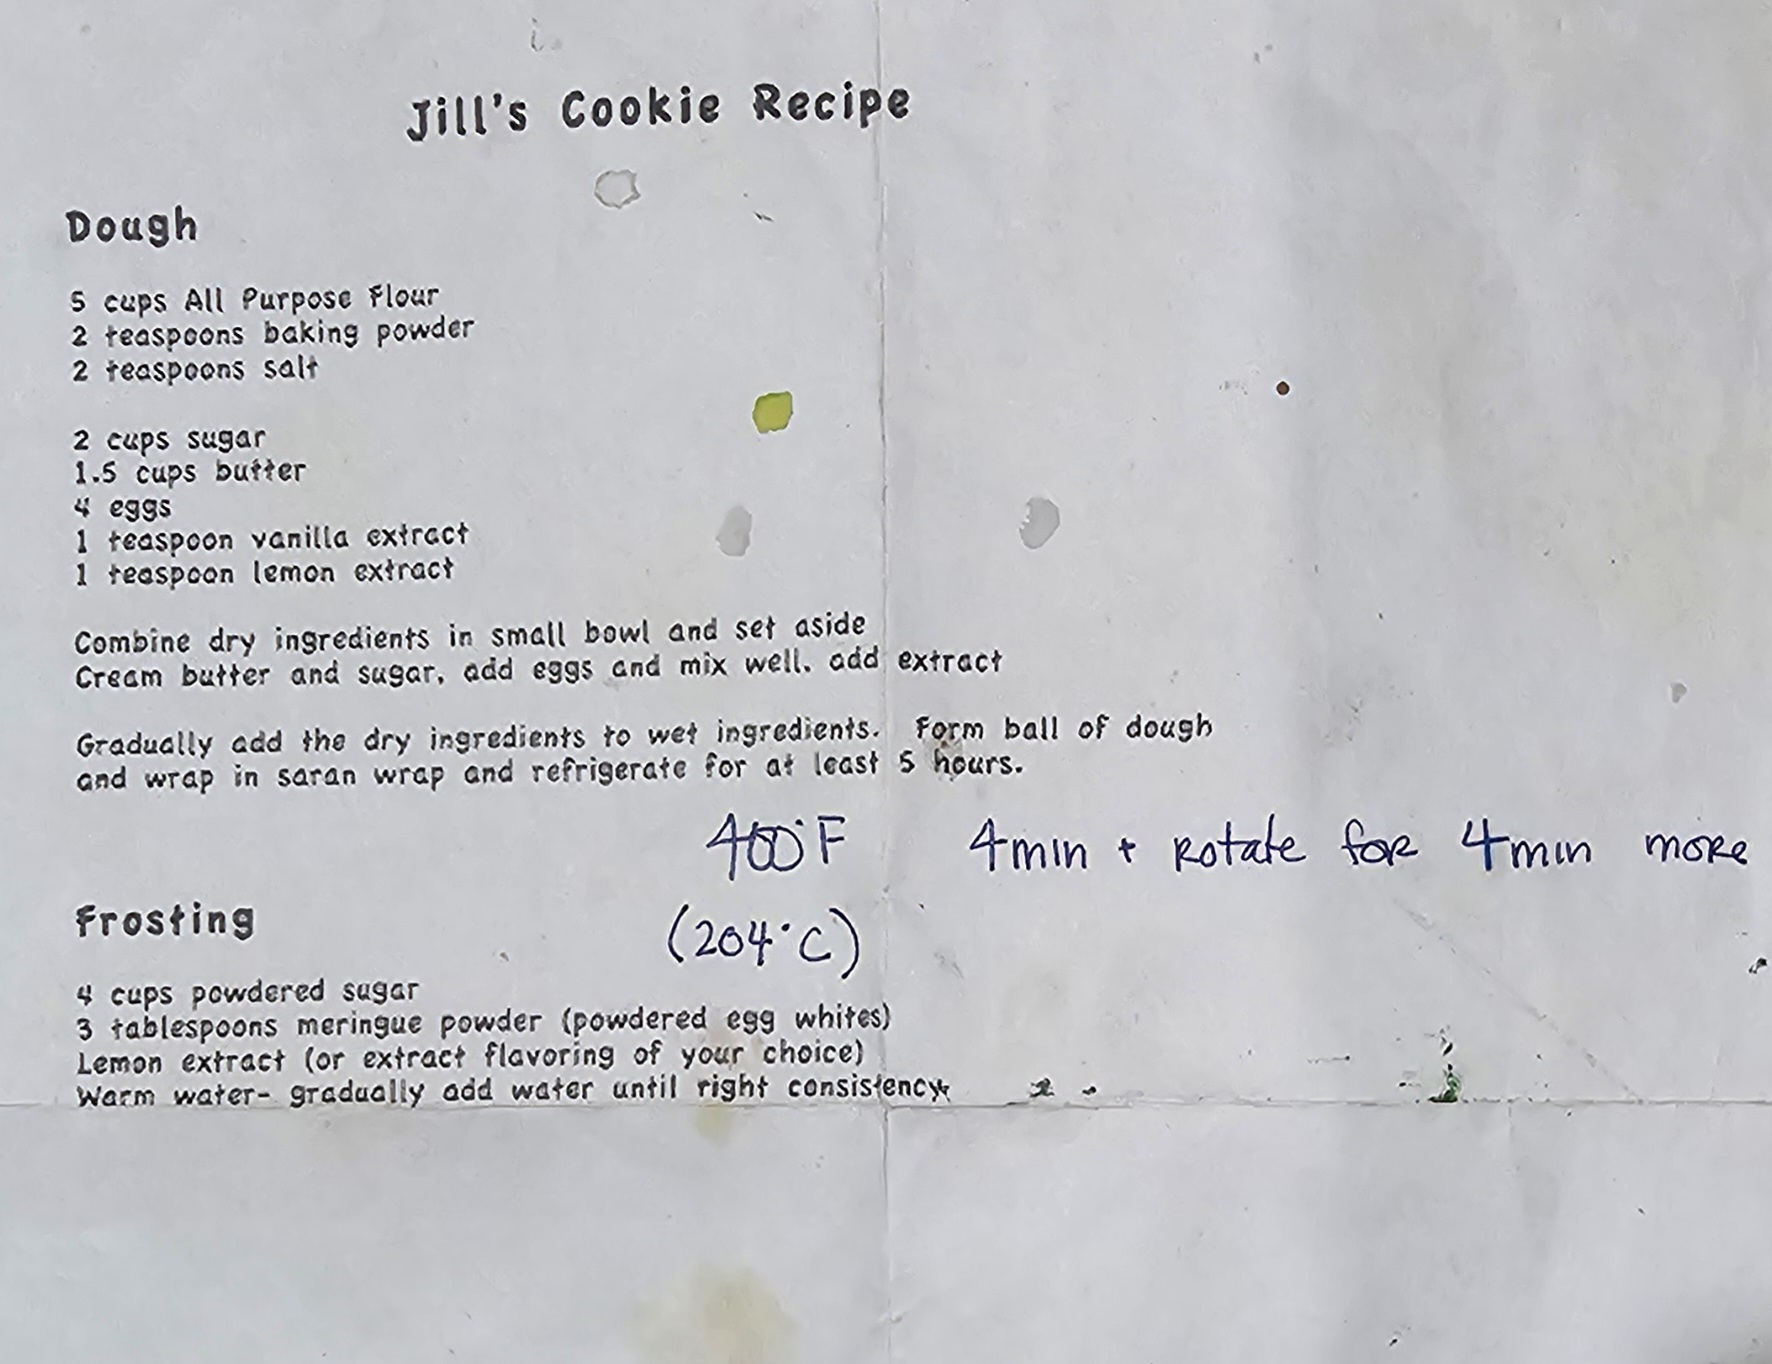 Jill's Cookie Recipe
Dough
5 cups All Purpose Flour
2 teaspoons baking powder
2 teaspoons salt
2 cups sugar
1.5 cups butter
4 eggs
1 teaspoon vanilla extract
1 teaspoon lemon extract
Combine dry ingredients in small bowl and set aside
Cream butter and sugar, add eggs and mix well. add extract
Gradually add the dry ingredients to wet ingredients. Form ball of dough
and wrap in saran wrap and refrigerate for at least 5 hours.
400°F 4min + Rotate for 4min more
(204°C)
Frosting
4 cups powdered sugar
3 tablespoons meringue powder (powdered egg whites)
Lemon extract (or extract flavoring of your choice)
Warm water- gradually add water until right consistency